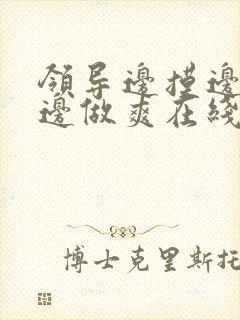 領导邊摸邊
邊做爽在綫
博士克里斯托